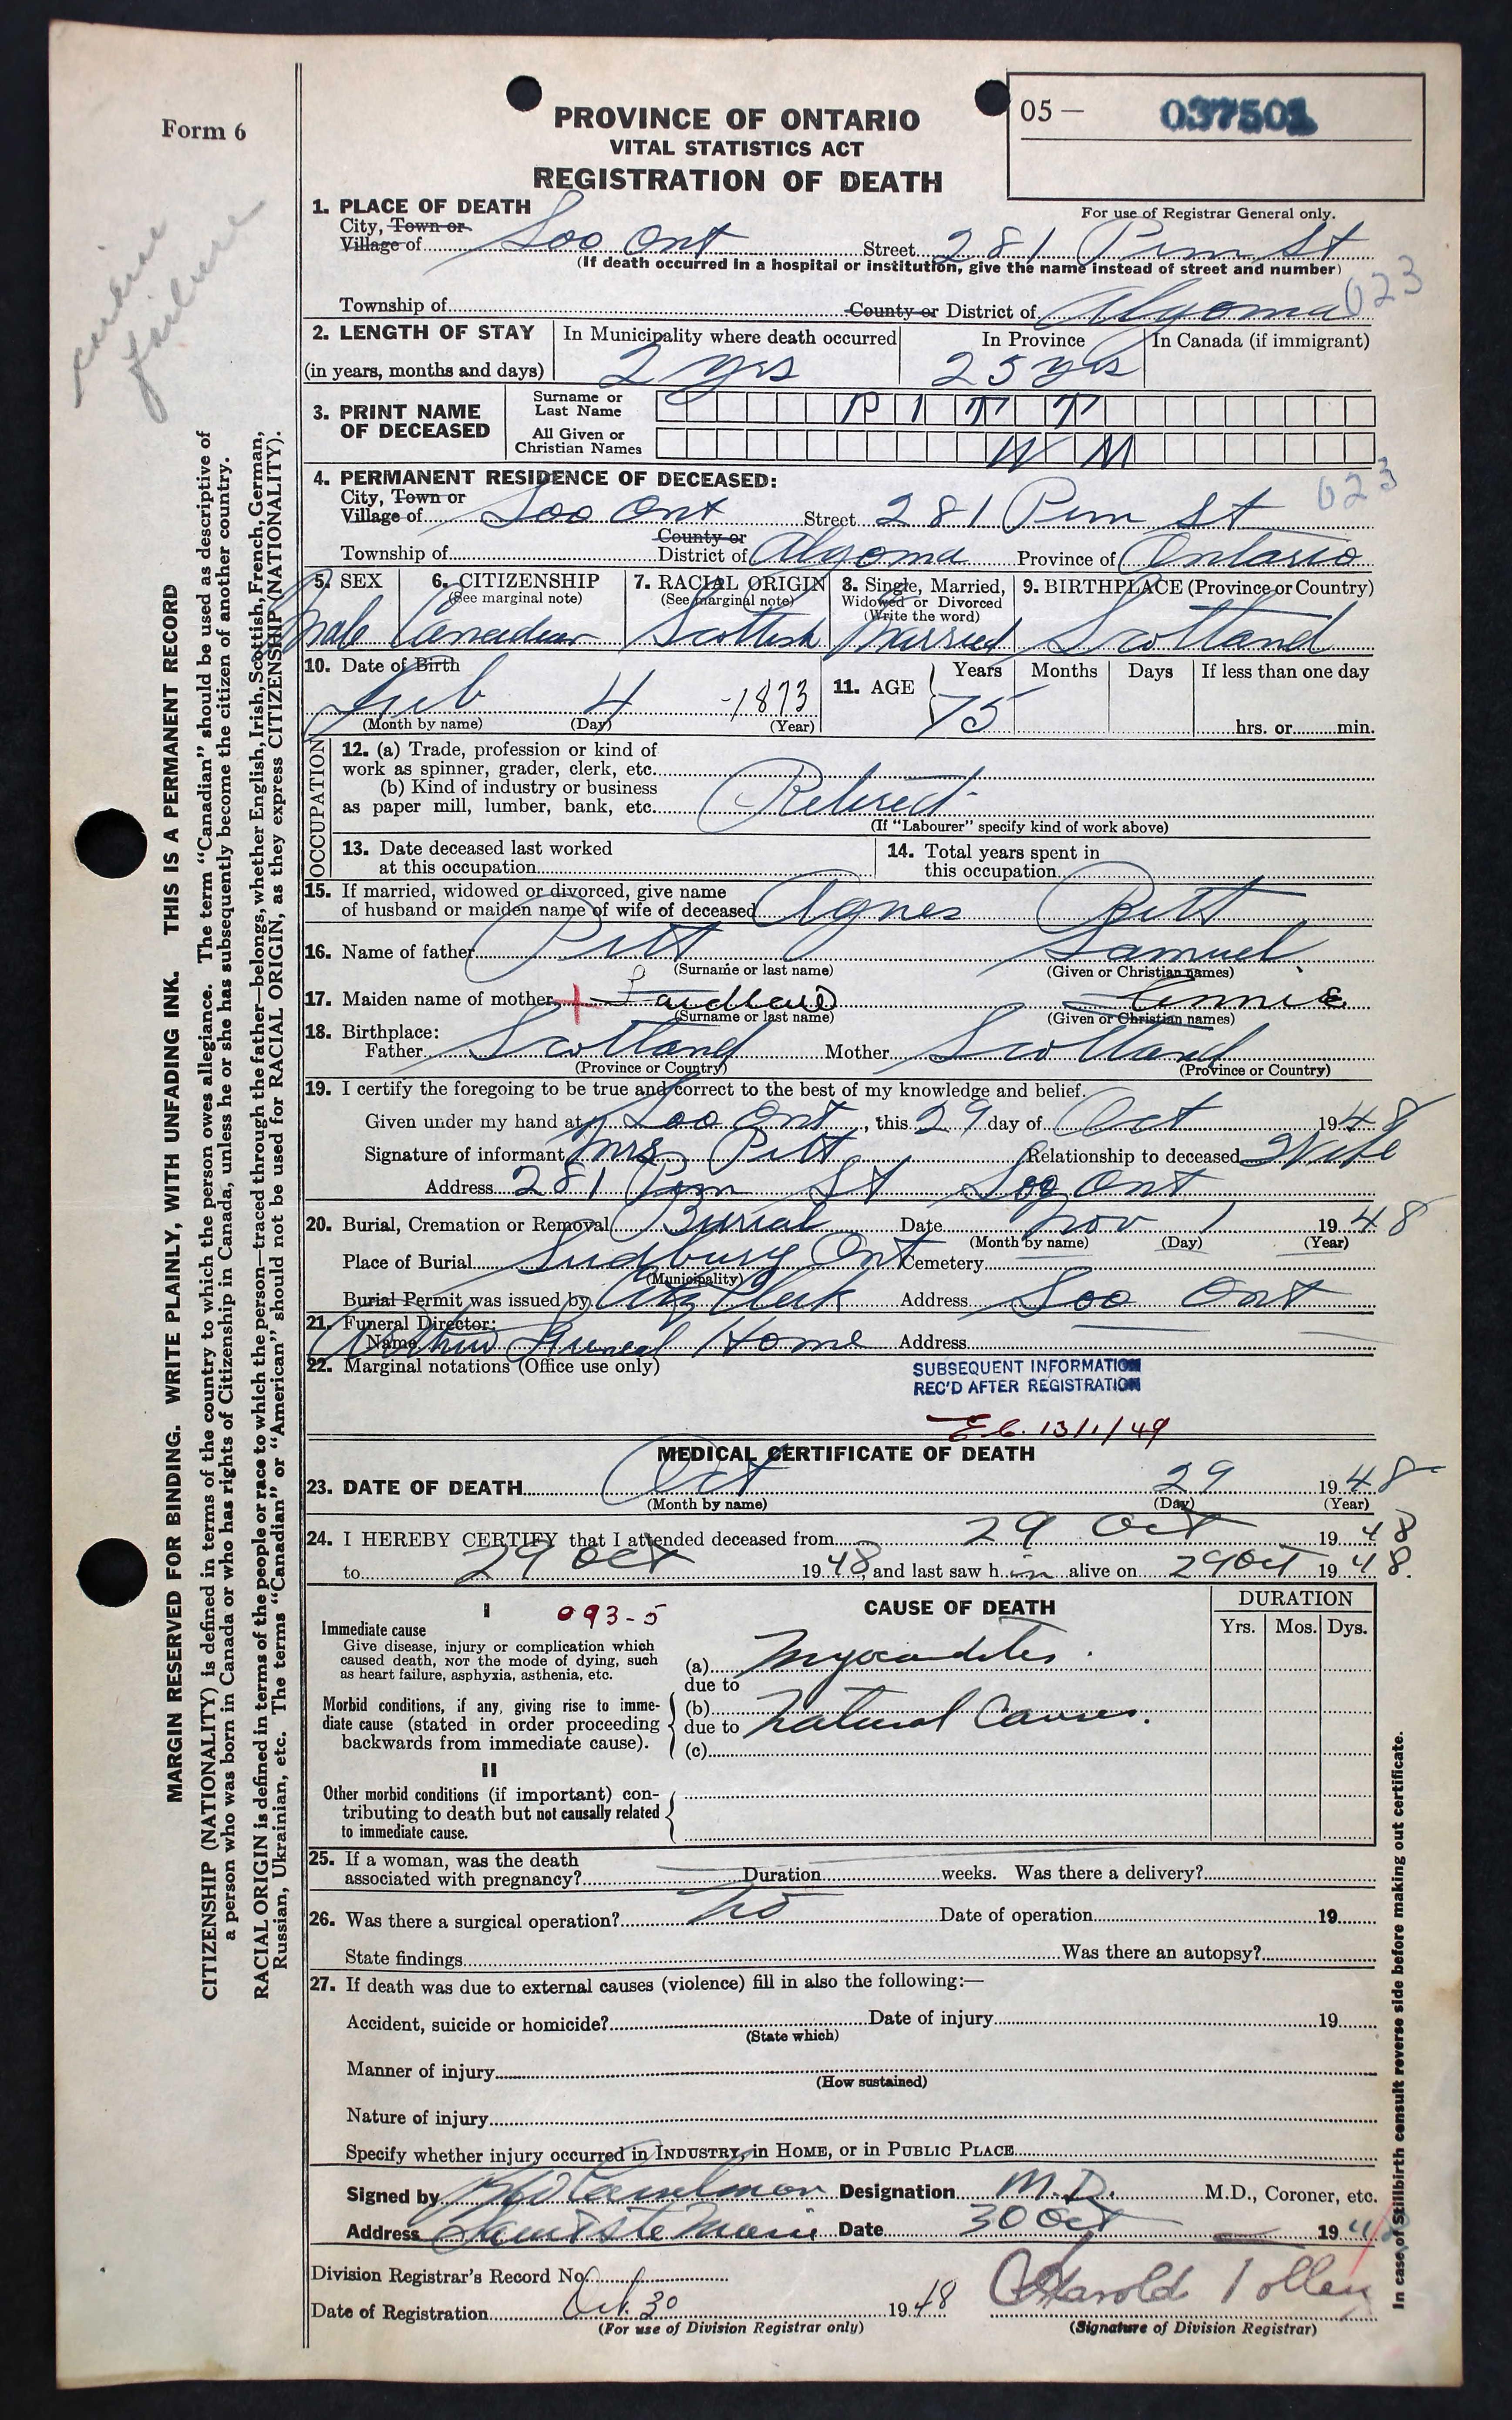 Form 6
05 — 037501
PROVINCE OF ONTARIO
VITAL STATISTICS ACT
REGISTRATION OF DEATH
For use of Registrar General only.
1. PLACE OF DEATH
City, Town or
Village of Soo Ont Street 281 Pim St
(If death occurred in a hospital or institution, give the name instead of street and number)
Township of County or District of Algoma 023
2. LENGTH OF STAY In Municipality where death occurred In Province In Canada (if immigrant)
(in years, months and days) 2 yrs 25 yrs
3. PRINT NAME OF DECEASED
Surname or Last Name PITT
All Given or Christian Names WM
4. PERMANENT RESIDENCE OF DECEASED: 023
City, Town or
Village of Soo Ont Street 281 Pim St
County or
Township of District of Algoma Province of Ontario
5. SEX 6. CITIZENSHIP 7. RACIAL ORIGIN 8. Single, Married, 9. BIRTHPLACE (Province or Country)
(See marginal note) (See marginal note) Widowed or Divorced
(Write the word)
Male Canadian Scottish Married Scotland
10. Date of Birth 11. AGE Years Months Days If less than one day
Feb 4 -1873 75
(Month by name) (Day) (Year) hrs. or min.
OCCUPATION
12. (a) Trade, profession or kind of
work as spinner, grader, clerk, etc.
(b) Kind of industry or business
as paper mill, lumber, bank, etc. Retired
(If "Labourer" specify kind of work above)
13. Date deceased last worked 14. Total years spent in
at this occupation this occupation
15. If married, widowed or divorced, give name
of husband or maiden name of wife of deceased Agnes Pitt
16. Name of father Pitt Samuel
(Surname or last name) (Given or Christian names)
17. Maiden name of mother
(Surname or last name) (Given or Christian names)
18. Birthplace:
Father Scotland Mother Scotland
(Province or Country) (Province or Country)
19. I certify the foregoing to be true and correct to the best of my knowledge and belief.
Given under my hand at Soo Ont, this 29 day of Oct 1948
Signature of informant Mrs Pitt Relationship to deceased Wife
Address 281 Pim St Soo Ont
20. Burial, Cremation or Removal Burial Date Nov 1 1948
(Month by name) (Day) (Year)
Place of Burial Sudbury Ont Cemetery
(Municipality)
Burial Permit was issued by City Clerk Address Soo Ont
21. Funeral Director:
Name Arthur Funeral Home Address
22. Marginal notations (Office use only)
SUBSEQUENT INFORMATION
REC'D AFTER REGISTRATION
E.C. 13/1/49
MEDICAL CERTIFICATE OF DEATH
23. DATE OF DEATH Oct 29 1948
(Month by name) (Day) (Year)
24. I HEREBY CERTIFY that I attended deceased from 29 Oct 1948
to 29 Oct 1948, and last saw him alive on 29 Oct 1948.
I 093-5 CAUSE OF DEATH DURATION
Yrs. Mos. Dys.
Immediate cause
Give disease, injury or complication which
caused death, NOT the mode of dying, such
as heart failure, asphyxia, asthenia, etc.
(a) Myocarditis.
due to
Morbid conditions, if any, giving rise to imme-
diate cause (stated in order proceeding
backwards from immediate cause).
(b)
due to Natural Causes.
(c)
II
Other morbid conditions (if important) con-
tributing to death but not causally related
to immediate cause.
25. If a woman, was the death
associated with pregnancy? Duration weeks. Was there a delivery?
26. Was there a surgical operation? No Date of operation 19
State findings Was there an autopsy?
27. If death was due to external causes (violence) fill in also the following:—
Accident, suicide or homicide? Date of injury 19
(State which)
Manner of injury
(How sustained)
Nature of injury
Specify whether injury occurred in INDUSTRY, in HOME, or in PUBLIC PLACE
Signed by Designation M.D. M.D., Coroner, etc.
Address Sault Ste Marie Date 30 Oct 19
Division Registrar's Record No.
Date of Registration Oct. 30 1948 Harold Tolley
(For use of Division Registrar only) (Signature of Division Registrar)
failure
MARGIN RESERVED FOR BINDING. WRITE PLAINLY, WITH UNFADING INK. THIS IS A PERMANENT RECORD
CITIZENSHIP (NATIONALITY) is defined in terms of the country to which the person owes allegiance. The term "Canadian" should be used as descriptive of
a person who was born in Canada or who has rights of Citizenship in Canada, unless he or she has subsequently become the citizen of another country.
RACIAL ORIGIN is defined in terms of the people or race to which the person—traced through the father—belongs, whether English, Irish, Scottish, French, German,
Russian, Ukrainian, etc. The terms "Canadian" or "American" should not be used for RACIAL ORIGIN, as they express CITIZENSHIP (NATIONALITY).
In case of Stillbirth consult reverse side before making out certificate.